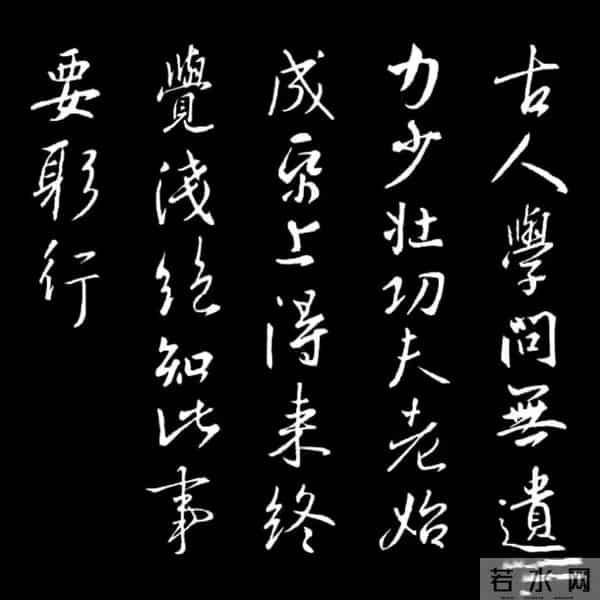 古人學問無遺
力少壯功夫老始
成帋上得来終
覺淺絕知此事
要躬行
若水网